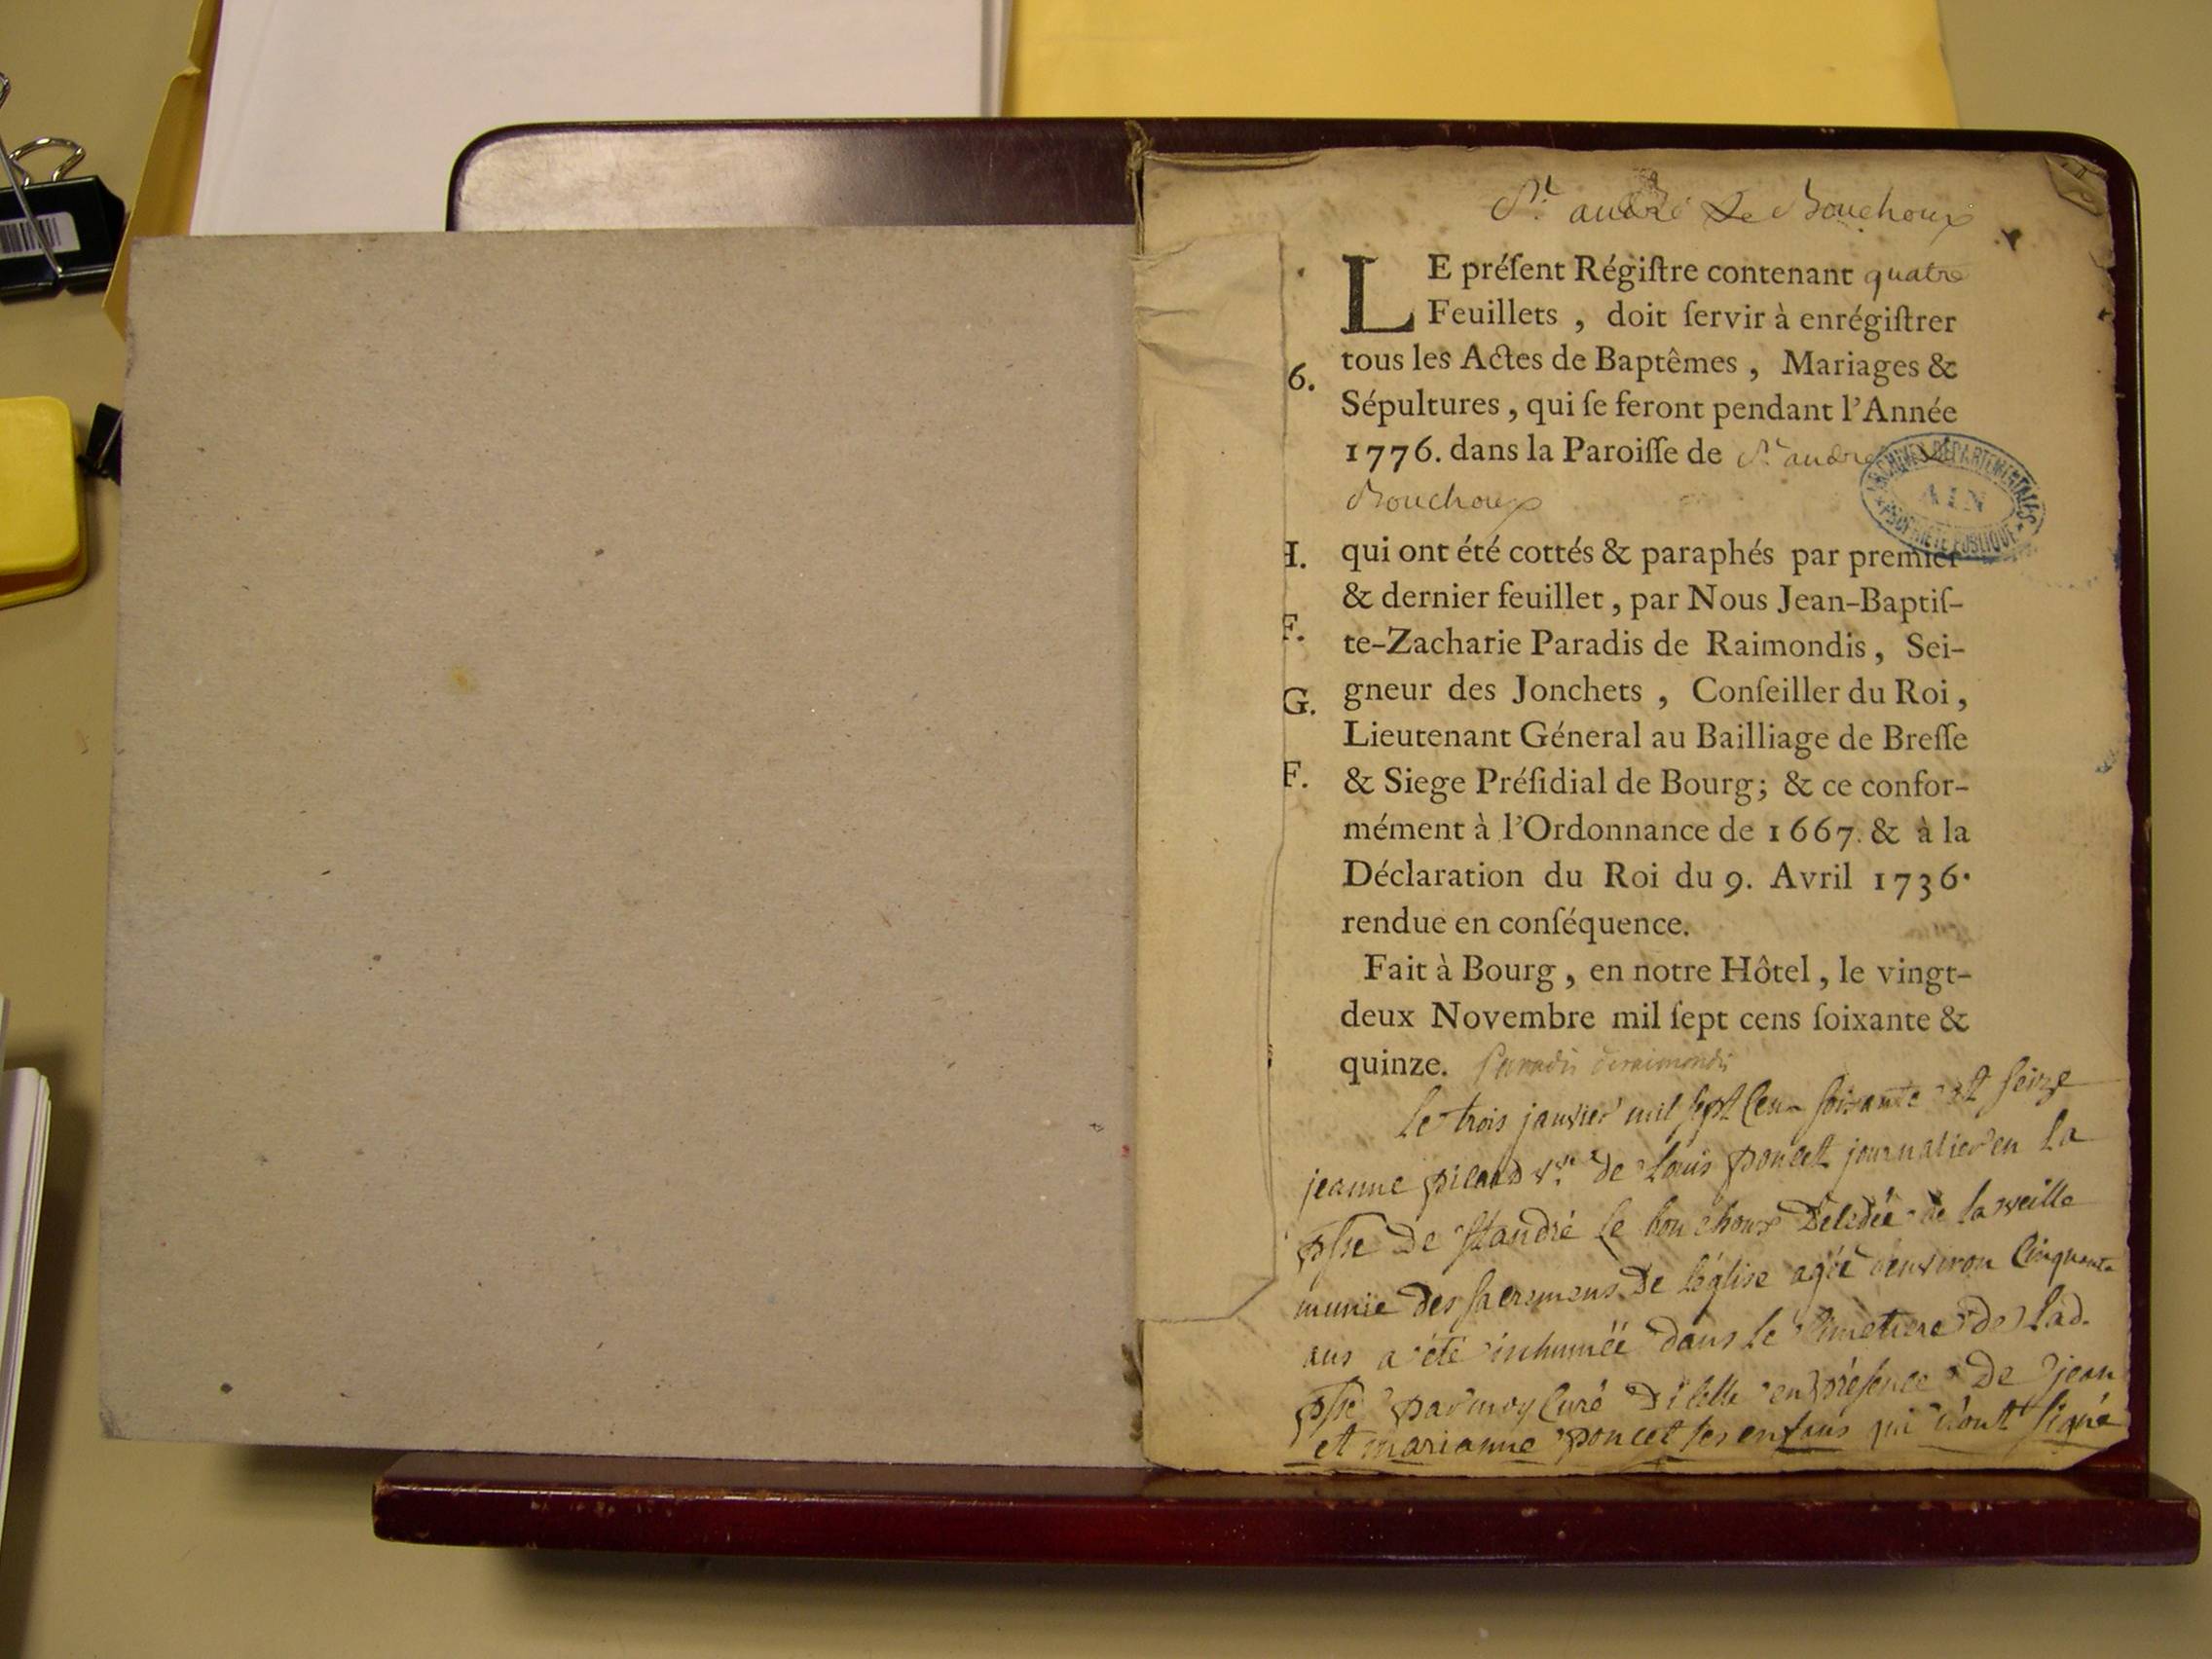 St. andré Le Bouchoux
LE préſent Régiſtre contenant quatre
Feuillets , doit ſervir à enrégiſtrer
tous les Actes de Baptêmes , Mariages &
6.
Sépultures , qui ſe feront pendant l'Année
1776. dans la Paroiſſe de St. andre
Bouchoux
ARCHIVES DÉPARTEMENTALES
AIN
PROPRIÉTÉ PUBLIQUE
H. qui ont été cottés & paraphés par premier
& dernier feuillet , par Nous Jean-Baptiſ-
F. te-Zacharie Paradis de Raimondis , Sei-
G. gneur des Jonchets , Conſeiller du Roi ,
Lieutenant Géneral au Bailliage de Breſſe
F. & Siege Préſidial de Bourg ; & ce confor-
mément à l'Ordonnance de 1667. & à la
Déclaration du Roi du 9. Avril 1736.
rendue en conſéquence.
Fait à Bourg , en notre Hôtel , le vingt-
deux Novembre mil ſept cens ſoixante &
quinze. Paradis deraimondis
Le trois janvier mil sept Cen soixante et seize
jeanne de Louis poncet journalier en La
psse de St andré Le bouchoux Décédée de la veille
munie des sacremens De l'église agée d'environ Cinquante
ans a été inhumée dans Le Cimetiere de Lad.
psse par moy Curé D'icelle en présence De jean
et marianne poncet ses enfans qui n'ont signé